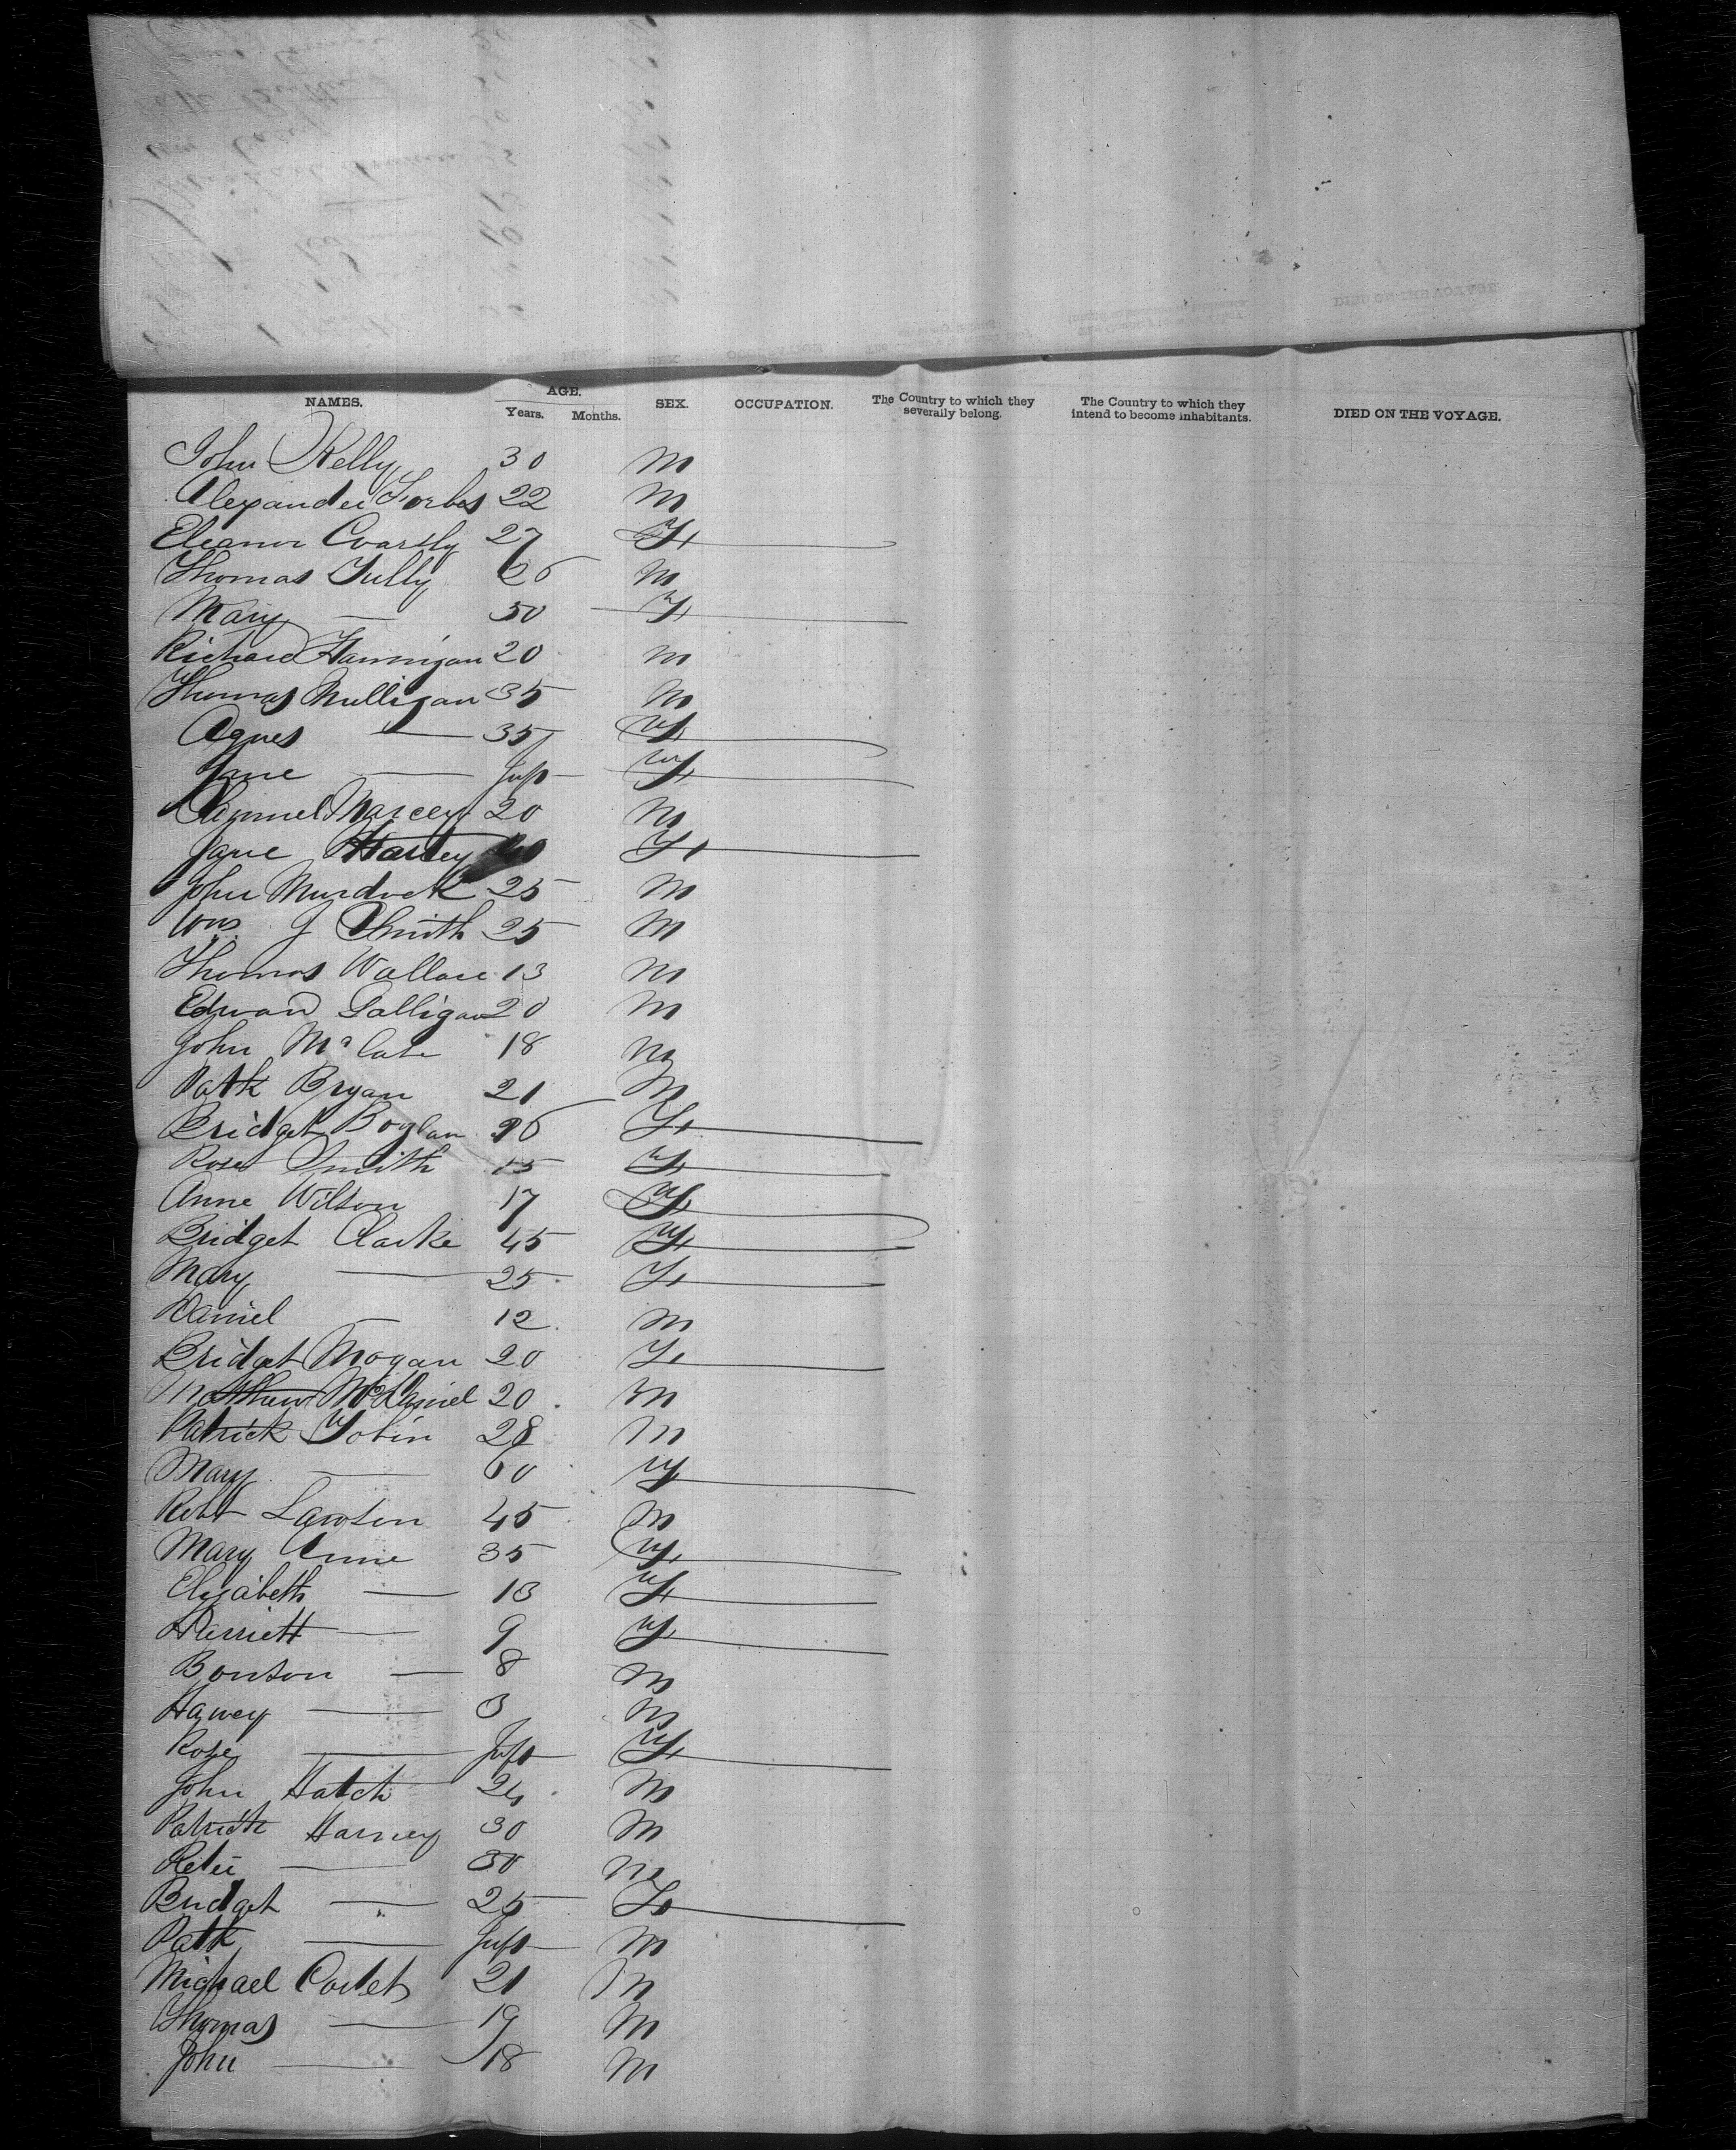 NAMES. AGE. Years. Months. SEX. OCCUPATION. The Country to which they severally belong. The Country to which they intend to become inhabitants. DIED ON THE VOYAGE.
John Kelly 30 M
Alexander Forbes 22 M
Eleanor 27 F
Thomas Tully 26 M
Mary — 50 F
Richard Hannigan 20 M
Thomas Mulligan 35 M
Agnes — 35 F
Jane — Inft F
Samuel 20 M
Jane F
John Murdock 25 M
Wm J Smith 25 M
Thomas Wallace 13 M
Edward Galligan 20 M
John McCabe 18 M
Patk Bryan 21 M
Bridget Boylan 26 F
Rose Smith 15 F
Anne Wilson 17 F
Bridget Clarke 45 F
Mary — 25 F
Daniel — 12 M
Bridget Mogan 20 F
Matthew McDaniel 20 M
Patrick Tobin 28 M
Mary — 60 F
Robt Lawson 45 M
Mary Anne 35 F
Elizabeth — 13 F
Harriett — 9 F
— 8 M
Harvey — 3 M
Rose — Inft F
John Hatch 24 M
Patrick Harney 30 M
Peter — 30 M
Bridget — 25 F
Patk — Inft M
Michael 21 M
Thomas — 19 M
John — 18 M